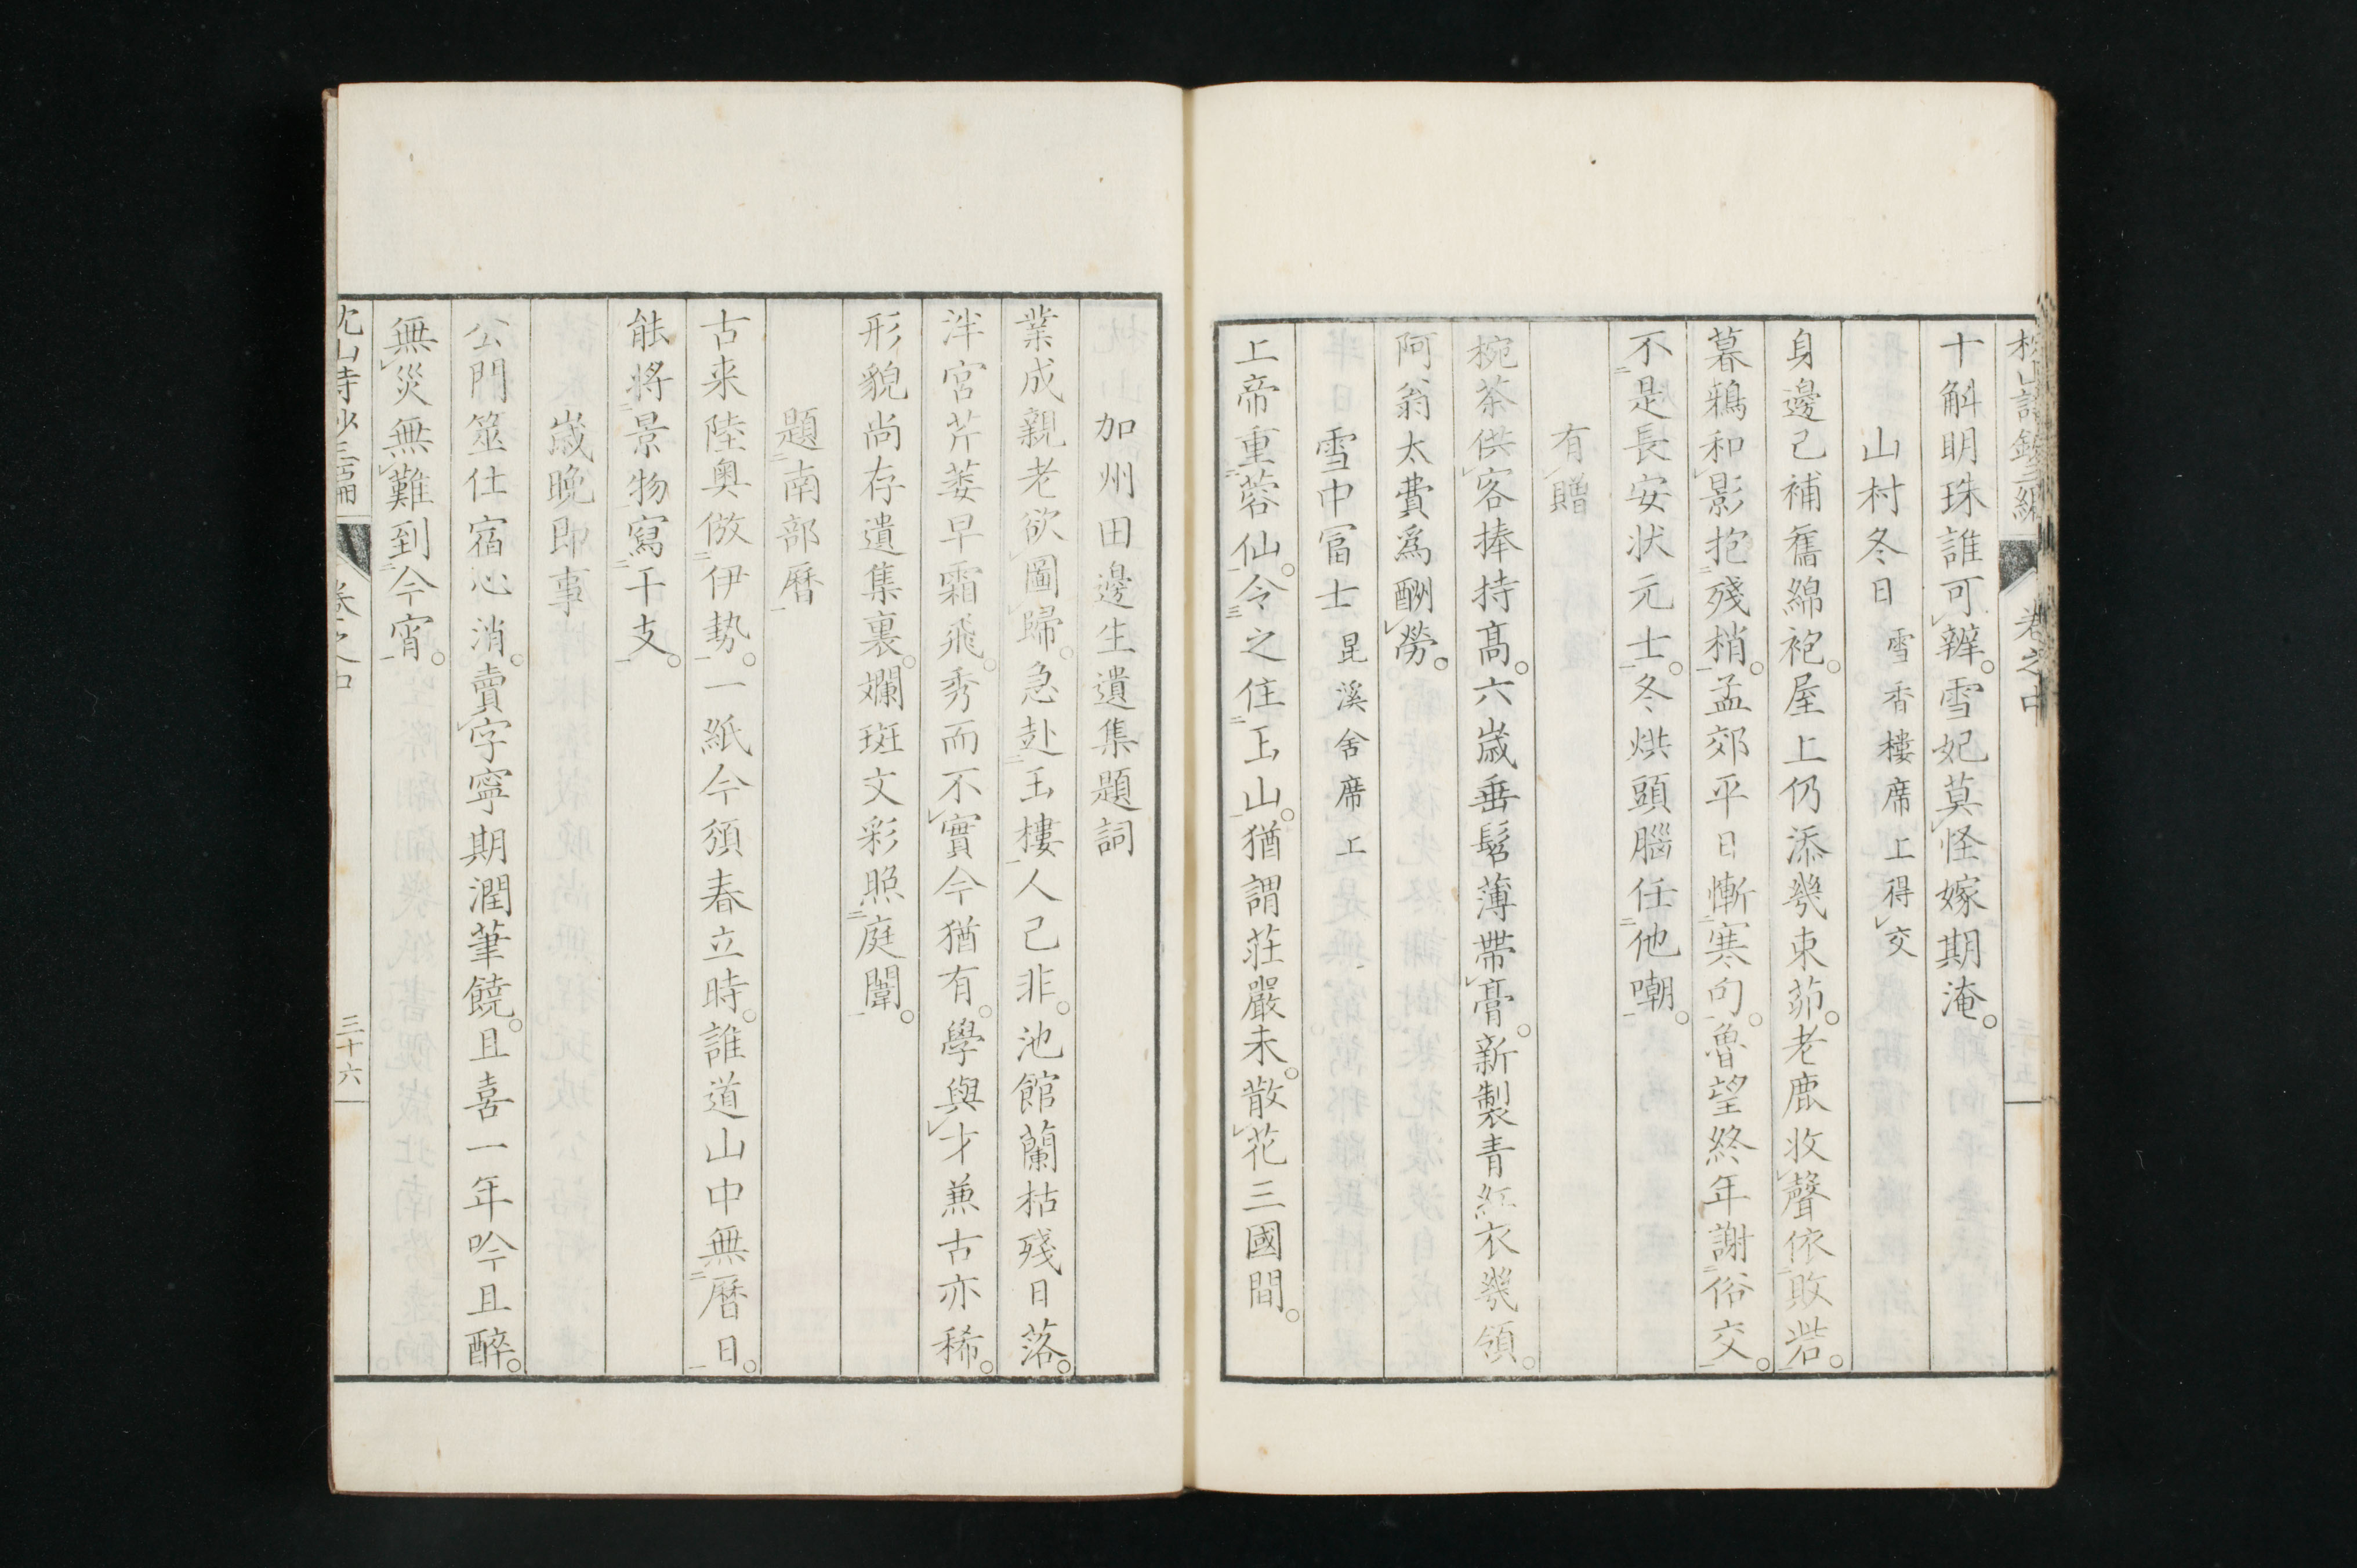 枕山詩鈔三編 卷之中
十斛明珠誰可辨。雪妃莫怪嫁期淹。
山村冬日 雪香樓席上得交
身邊已補舊綿袍。屋上仍添幾束茆。老鹿收聲依敗砦。
暮鴉和影抱殘梢。孟郊平日慚寒句。魯望終年謝俗交。
不是長安状元士。冬烘頭腦任他嘲。
有贈
椀茶供客捧持髙。六歳垂髫薄帶膏。新製青紅衣幾領。
阿翁太費爲酬勞。
雪中冨士 昆溪舍席上
上帝重蓉仙。令之住玉山。猶謂莊嚴未。散花三國間。
加州田邊生遺集題詞
業成親老欲圖歸。急赴玉樓人已非。池館蘭枯殘日落。
泮宮芹萎早霜飛。秀而不實今猶有。學與才兼古亦稀。
形貌尚存遺集裏。斕斑文彩照庭闈。
題南部曆
古来陸奥倣伊勢。一紙今頒春立時。誰道山中無曆日。
能將景物寫干支。
歳晩即事
公門筮仕宿心消。賣字寧期潤筆饒。且喜一年吟且醉。
無災無難到今宵。
枕山詩鈔三編 卷之中 三十六